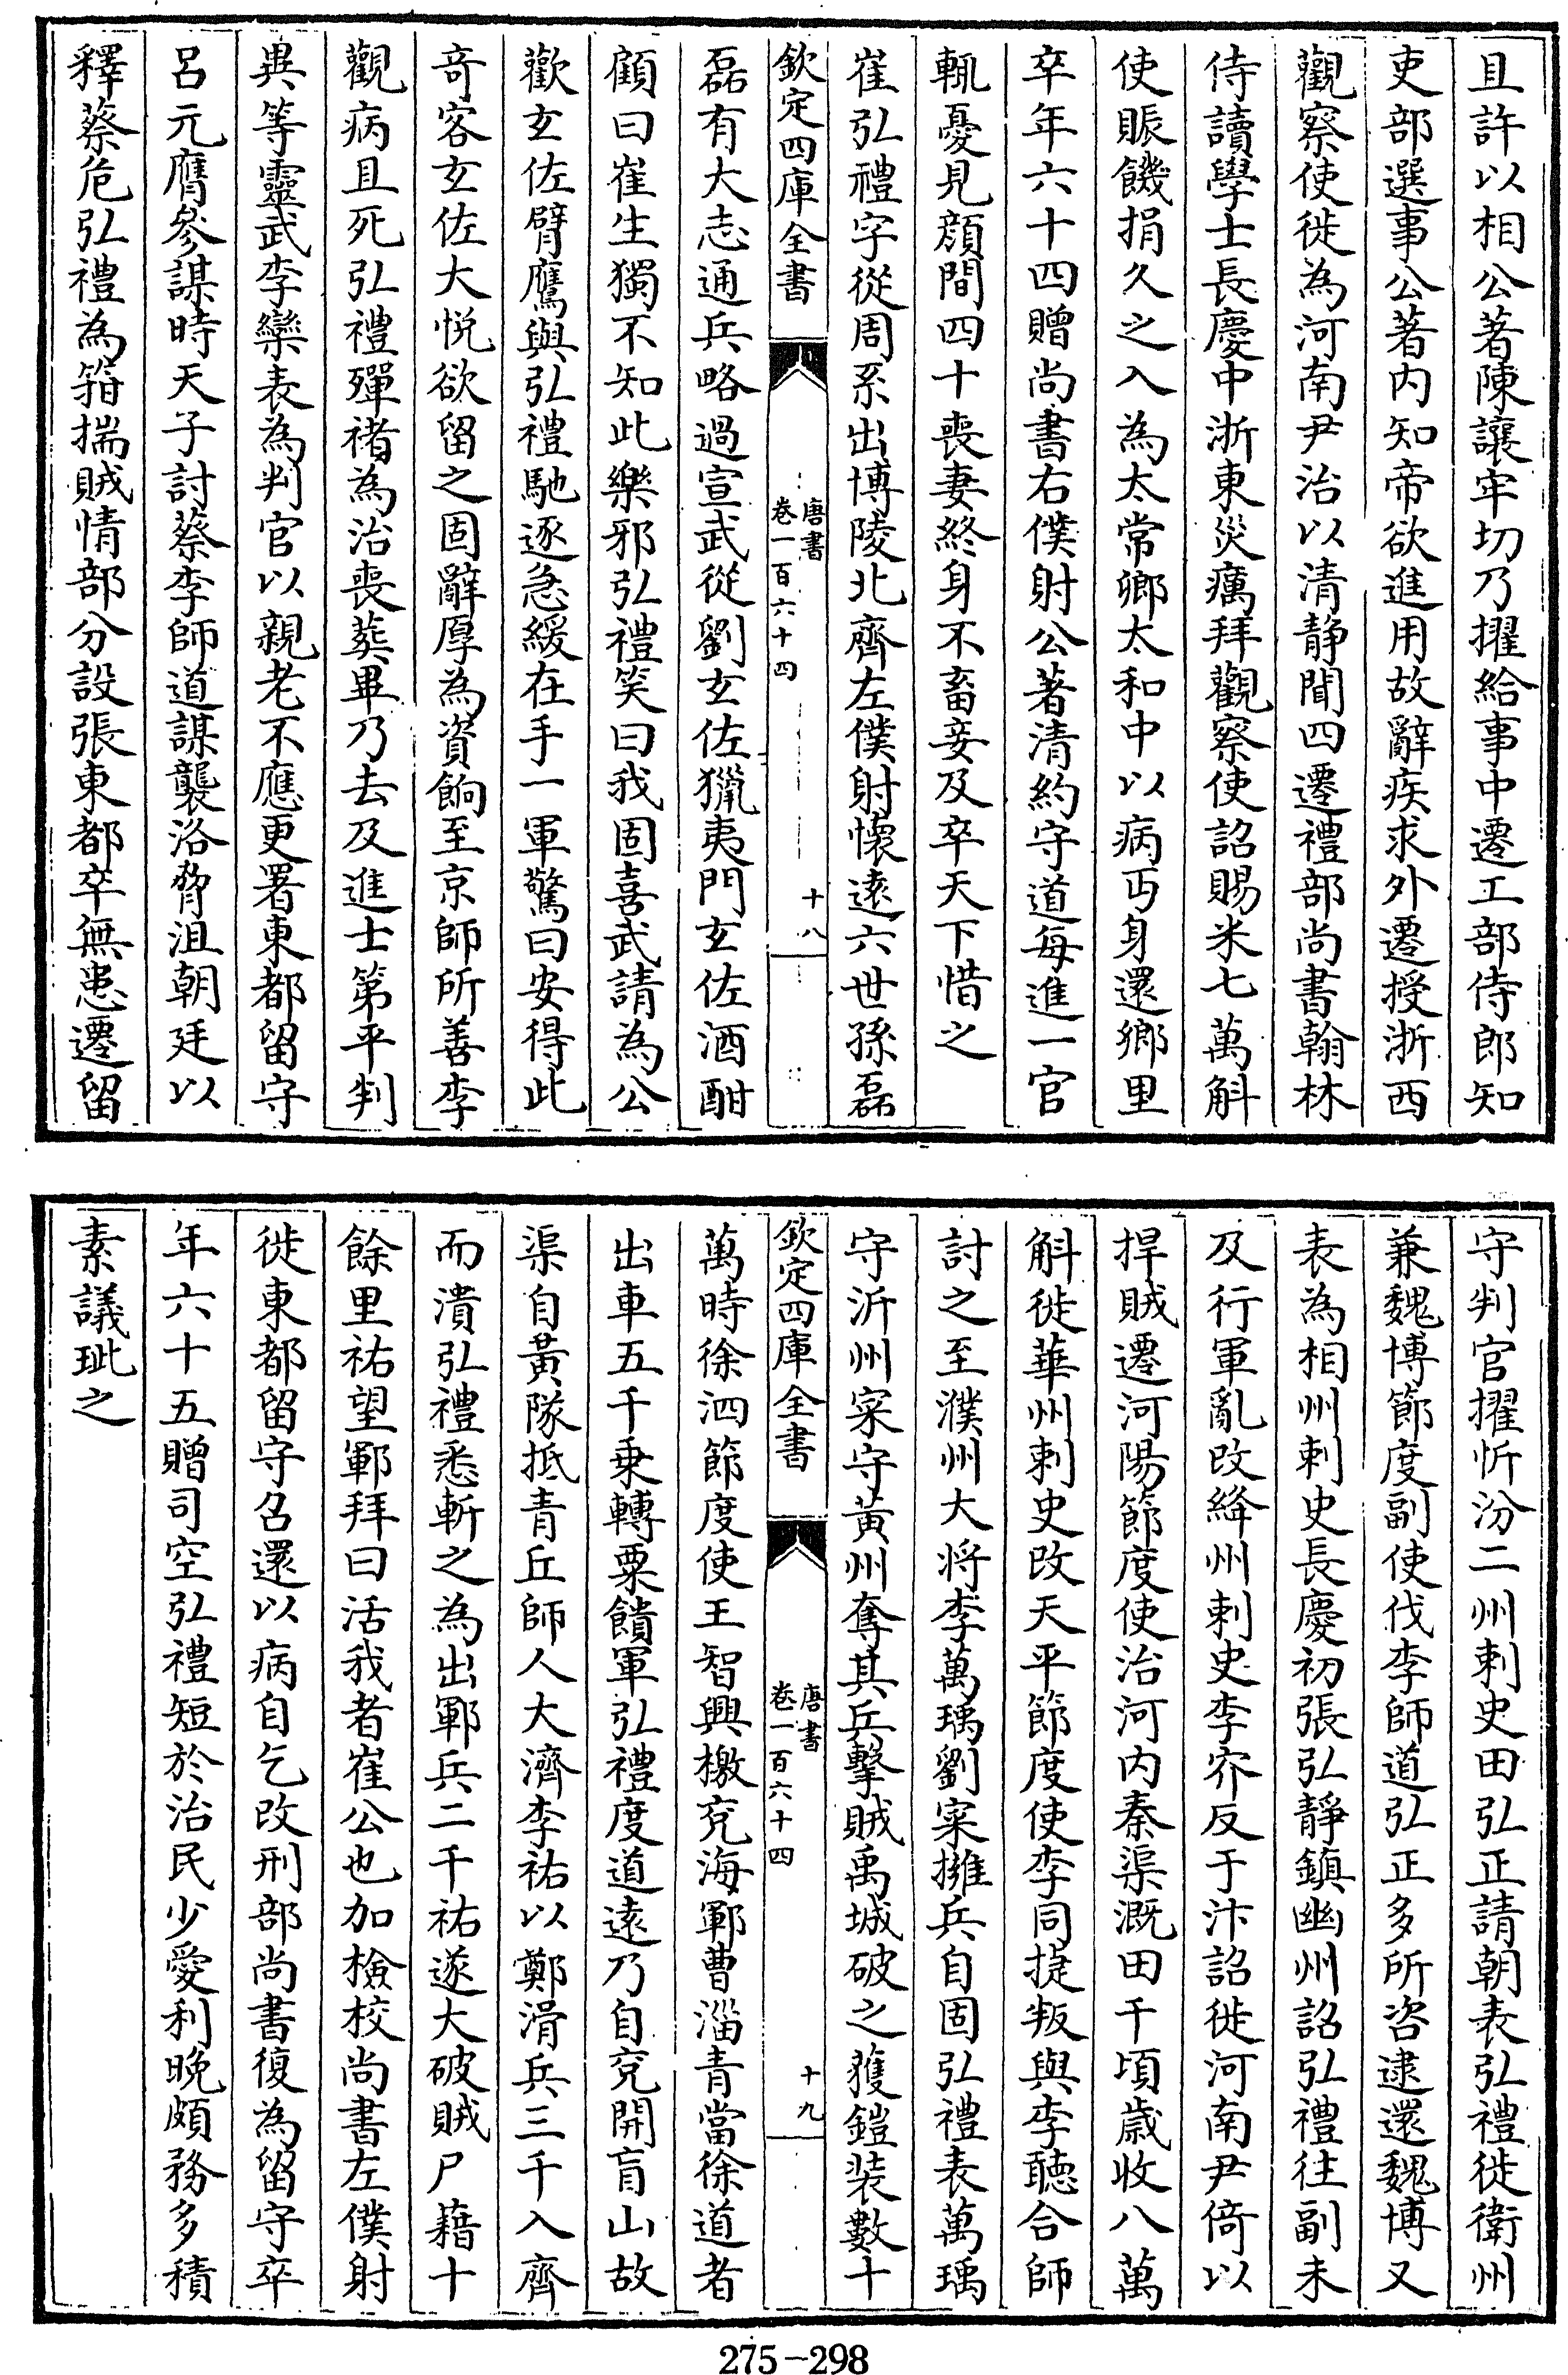 且許以相公著陳讓牢切乃擢給事中遷工部侍郎知
吏部選事公著内知帝欲進用故辭疾求外遷授浙西
觀察使徙為河南尹治以清静聞四遷禮部尚書翰林
侍讀學士長慶中浙東災癘拜觀察使詔賜米七萬斛
使賑饑捐久之入為太常卿太和中以病丏身還鄉里
卒年六十四贈尚書右僕射公著清約守道每進一官
輒憂見顏間四十喪妻終身不畜妾及卒天下惜之
崔弘禮字從周系出博陵北齊左僕射懷遠六世孫磊
欽定四庫全書
唐書
卷一百六十四
十八
磊有大志通兵略過宣武從劉玄佐獵夷門玄佐酒酣
顧曰崔生獨不知此樂邪弘禮笑曰我固喜武請為公
歡玄佐臂鷹與弘禮馳逐急緩在手一軍驚曰安得此
奇客玄佐大悦欲留之固辭厚為資餉至京師所善李
觀病且死弘禮殫褚為治喪葬畢乃去及進士第平判
異等靈武李欒表為判官以親老不應更署東都留守
呂元膺參謀時天子討蔡李師道謀襲洛脅沮朝廷以
釋蔡危弘禮為箝揣賊情部分設張東都卒無患遷留
守判官擢忻汾二州刺史田弘正請朝表弘禮徙衛州
兼魏博節度副使伐李師道弘正多所咨逮還魏博又
表為相州刺史長慶初張弘靜鎮幽州詔弘禮往副未
及行軍亂改絳州刺史李㝏反于汴詔徙河南尹倚以
捍賊遷河陽節度使治河内秦渠溉田千頃歲收八萬
斛徙華州刺史改天平節度使李同㨗叛與李聽合師
討之至濮州大將李萬瑀劉寀擁兵自固弘禮表萬瑀
守沂州寀守黃州奪其兵擊賊禹城破之獲鎧裝數十
欽定四庫全書
唐書
卷一百六十四
十九
萬時徐泗節度使王智興檄兗海鄆曹淄青當徐道者
出車五千乗轉粟饋軍弘禮度道遠乃自兗開盲山故
渠自黃隊抵青丘師人大濟李祐以鄭滑兵三千入齊
而潰弘禮悉斬之為出鄆兵二千祐遂大破賊尸藉十
餘里祐望鄆拜曰活我者崔公也加檢校尚書左僕射
徙東都留守召還以病自乞改刑部尚書復為留守卒
年六十五贈司空弘禮短於治民少愛利晩頗務多積
素議玼之
275-298